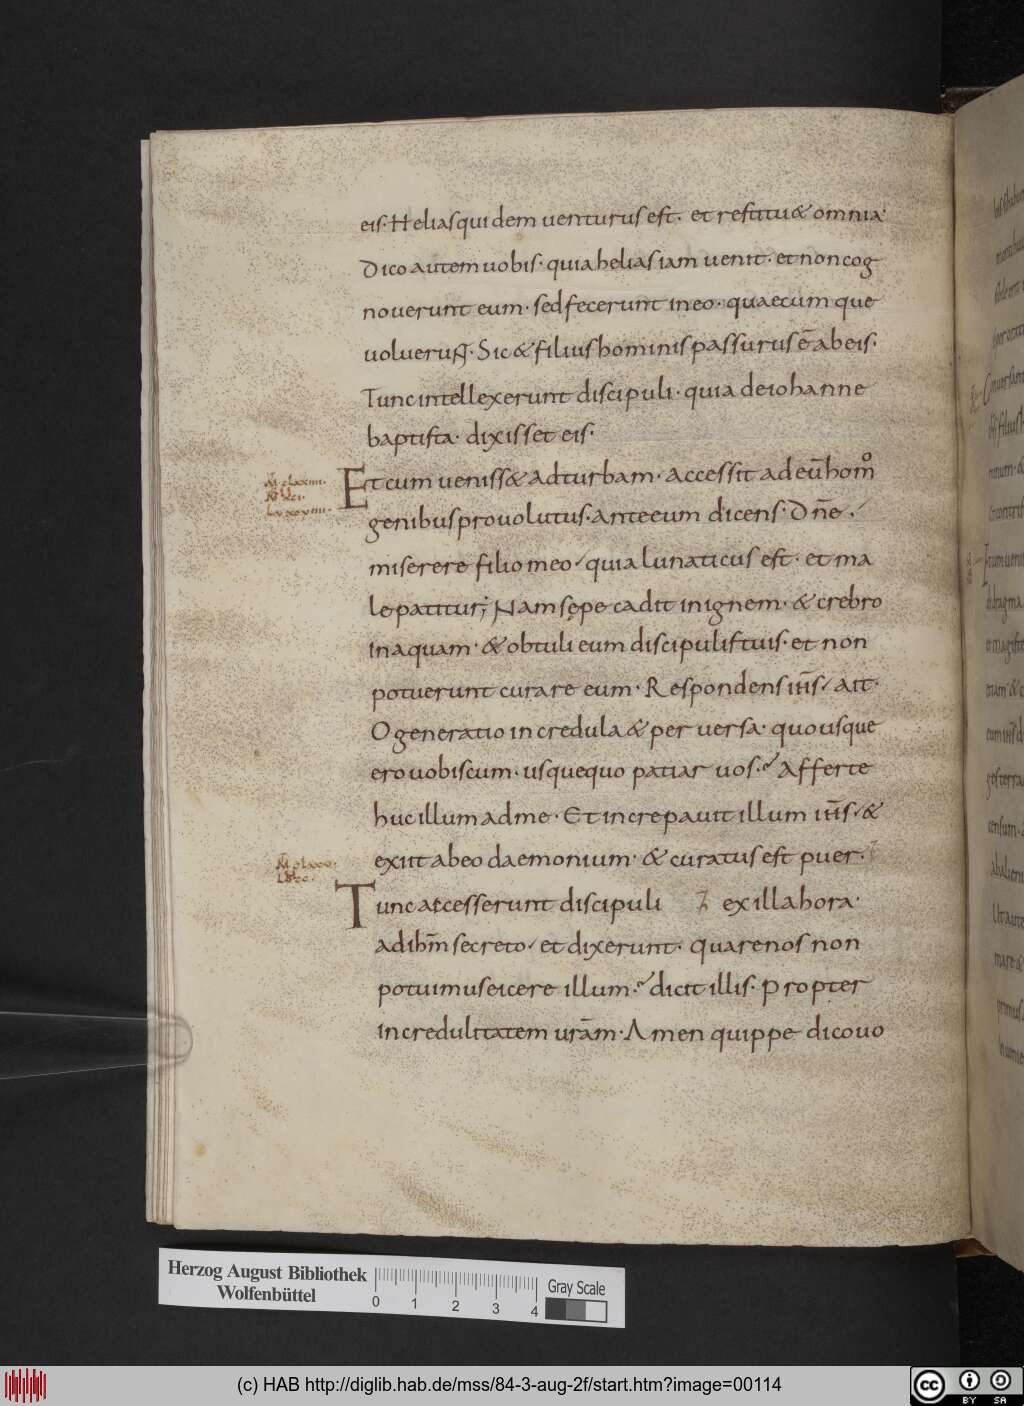 eis· Helias quidem uenturus est· et restitu& omnia·
Dico autem uobis· quia helias iam uenit· et non cog
nouerunt eum· sed fecerunt in eo· quaecum que
uoluerunt· Sic & filius hominis passurus ē ab eis·
Tunc intellexerunt discipuli· quia de iohanne
baptista· dixisset eis·
Et cum ueniss& ad turbam· accessit ad eū hom̊
genibus prouolutus· ante eum dicens· Dn̄e·
miserere filio meo quia lunaticus est· et ma
le patitur; Nam sępe cadit in ignem· & crebro
in aquam· & obtuli eum discipulis tuis· et non
potuerunt curare eum· Respondens ih̄s ait·
O generatio in credula & per uersa· quo usque
ero uobiscum· usquequo patiar uos· Afferte
huc illum ad me· Et increpauit illum ih̄s &
exiit ab eo daemonium· & curatus est puer·
Tunc accesserunt discipuli ex illa hora·
ad ihm̄ secreto et dixerunt· quare nos non
potuimus eicere illum· dicit illis· Propter
incredulitatem urām· Amen quippe dico uo
Herzog August Bibliothek
Wolfenbüttel
0 1 2 3 4
Gray Scale
(c) HAB http://diglib.hab.de/mss/84-3-aug-2f/start.htm?image=00114
cc BY SA